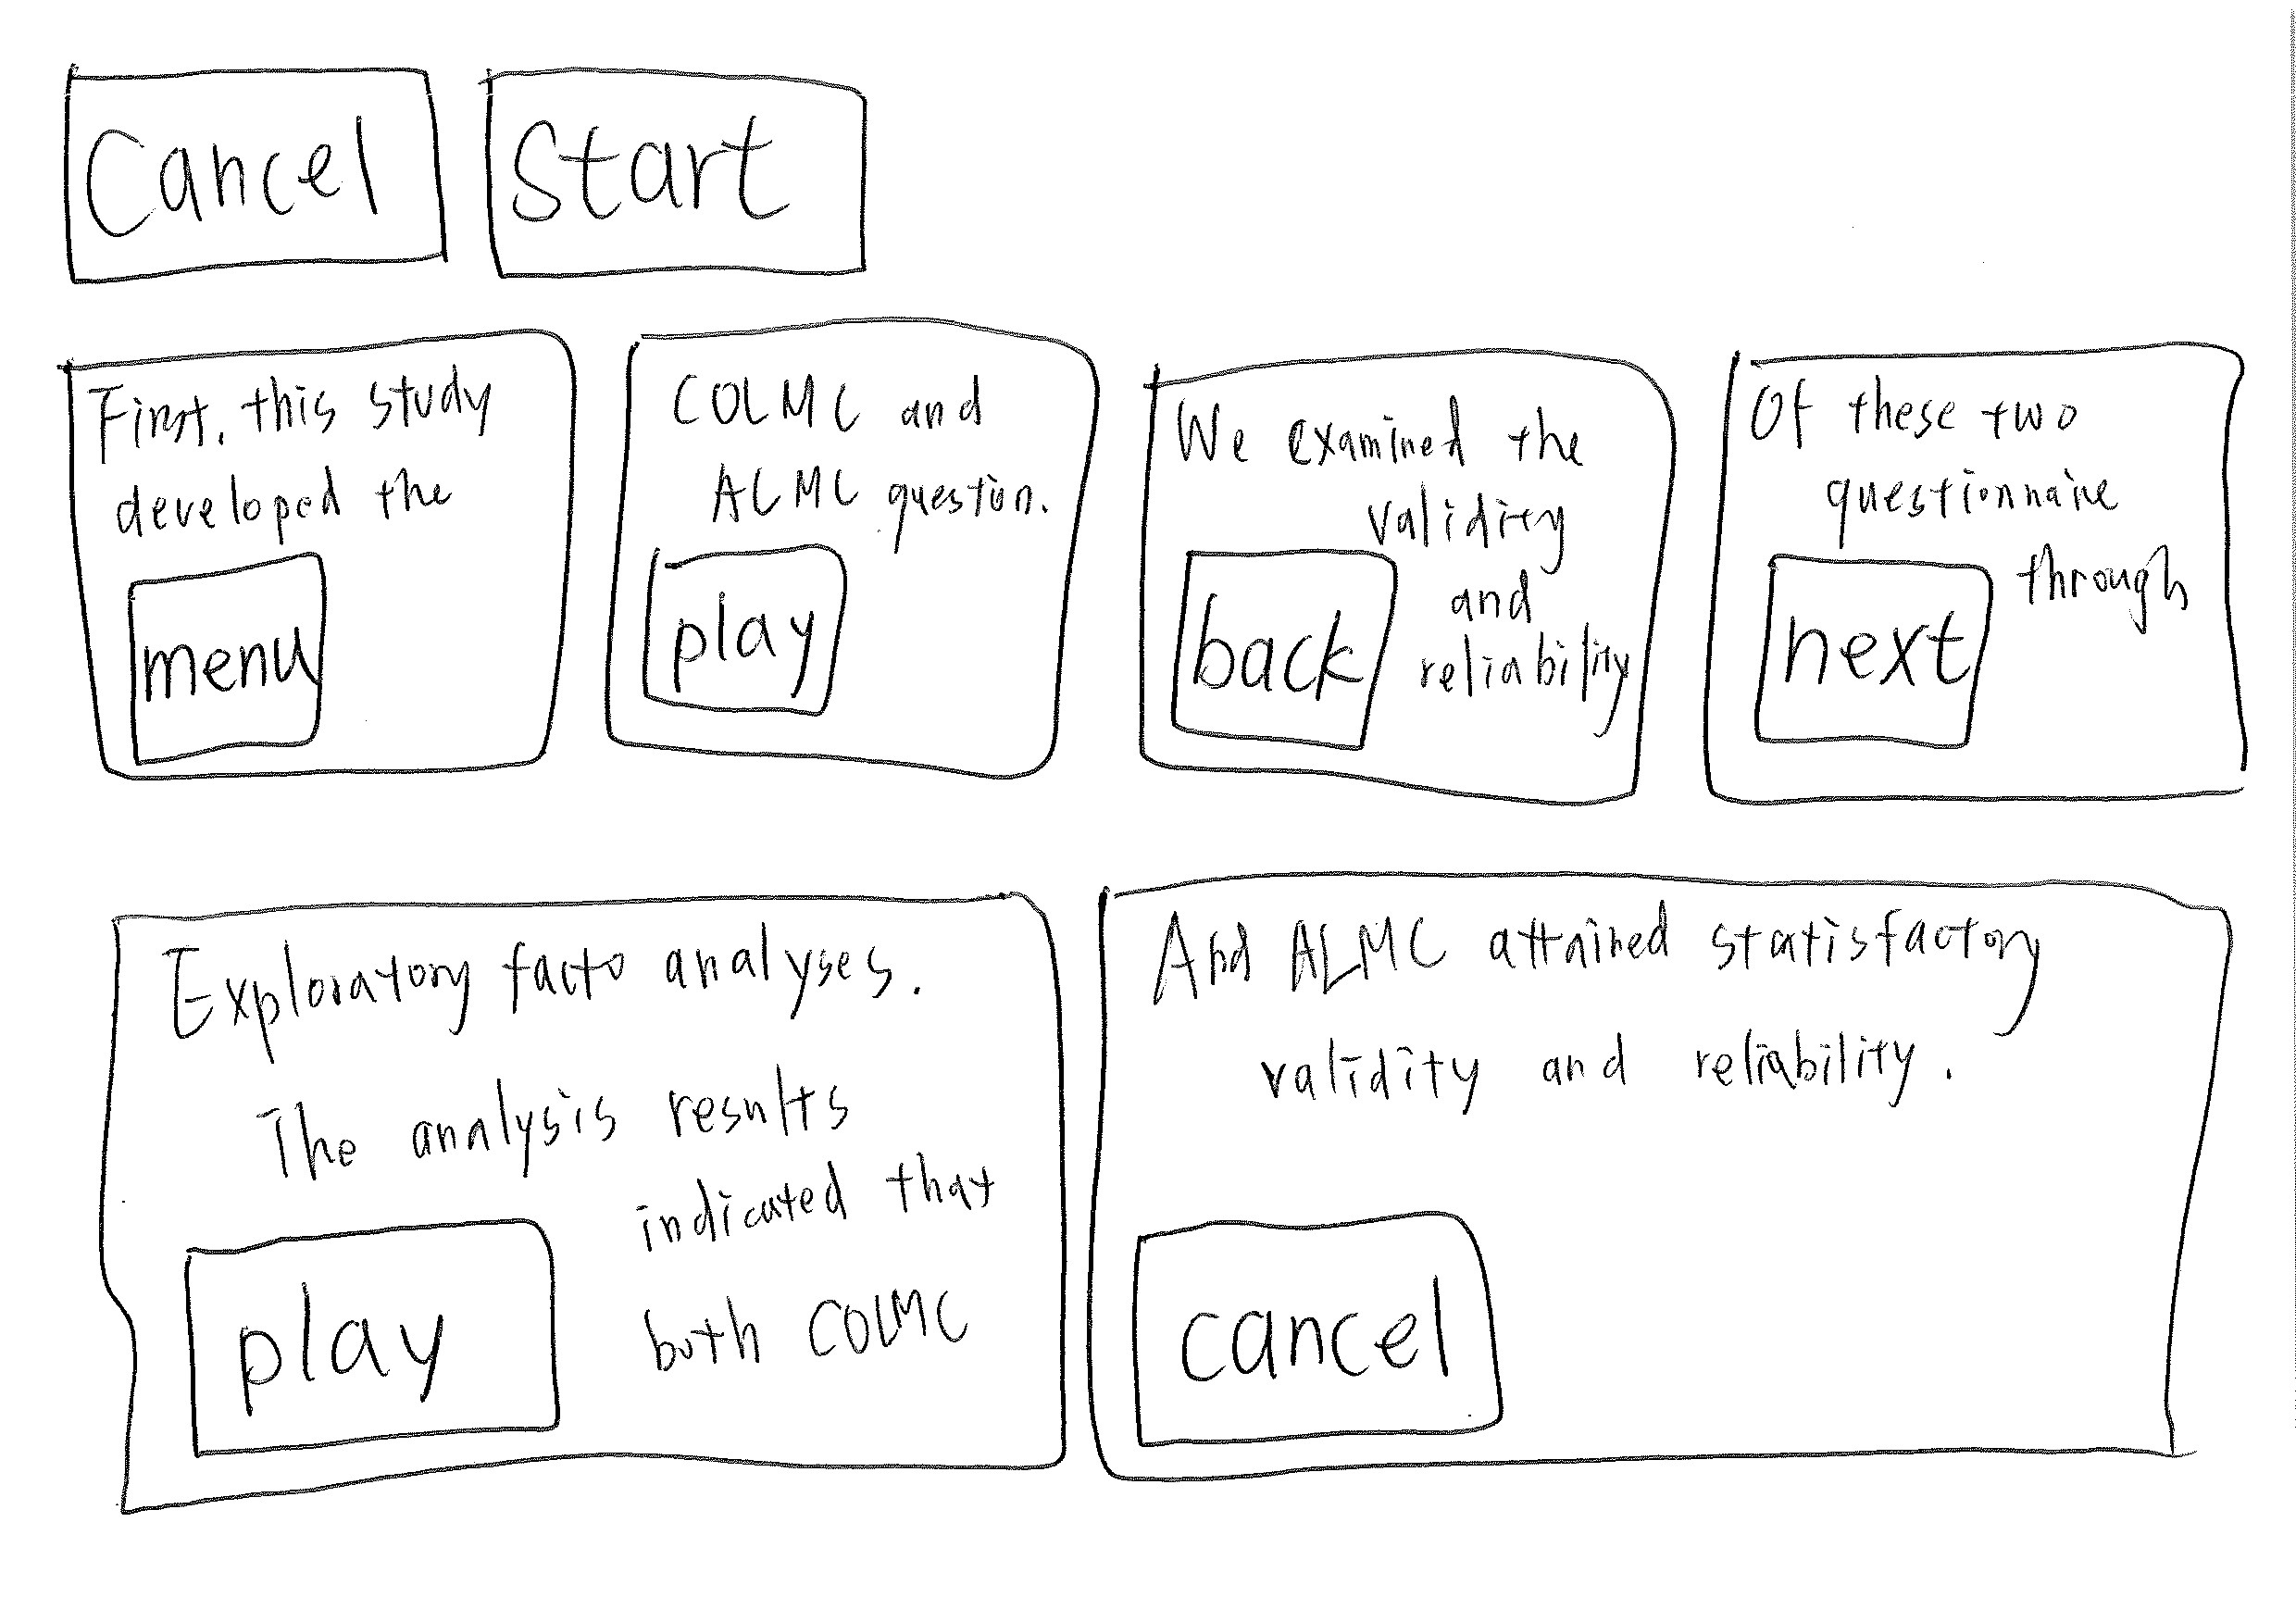 Cancel
Start
First, this study
developed the
menu
COLMC and
ALMC question.
play
We examined the
validity
and
reliability
back
Of these two
questionnaire
through
next
Exploratory facto analyses.
The analysis results
indicated that
both COLMC
play
And ALMC attained statisfactory
validity and reliability.
cancel